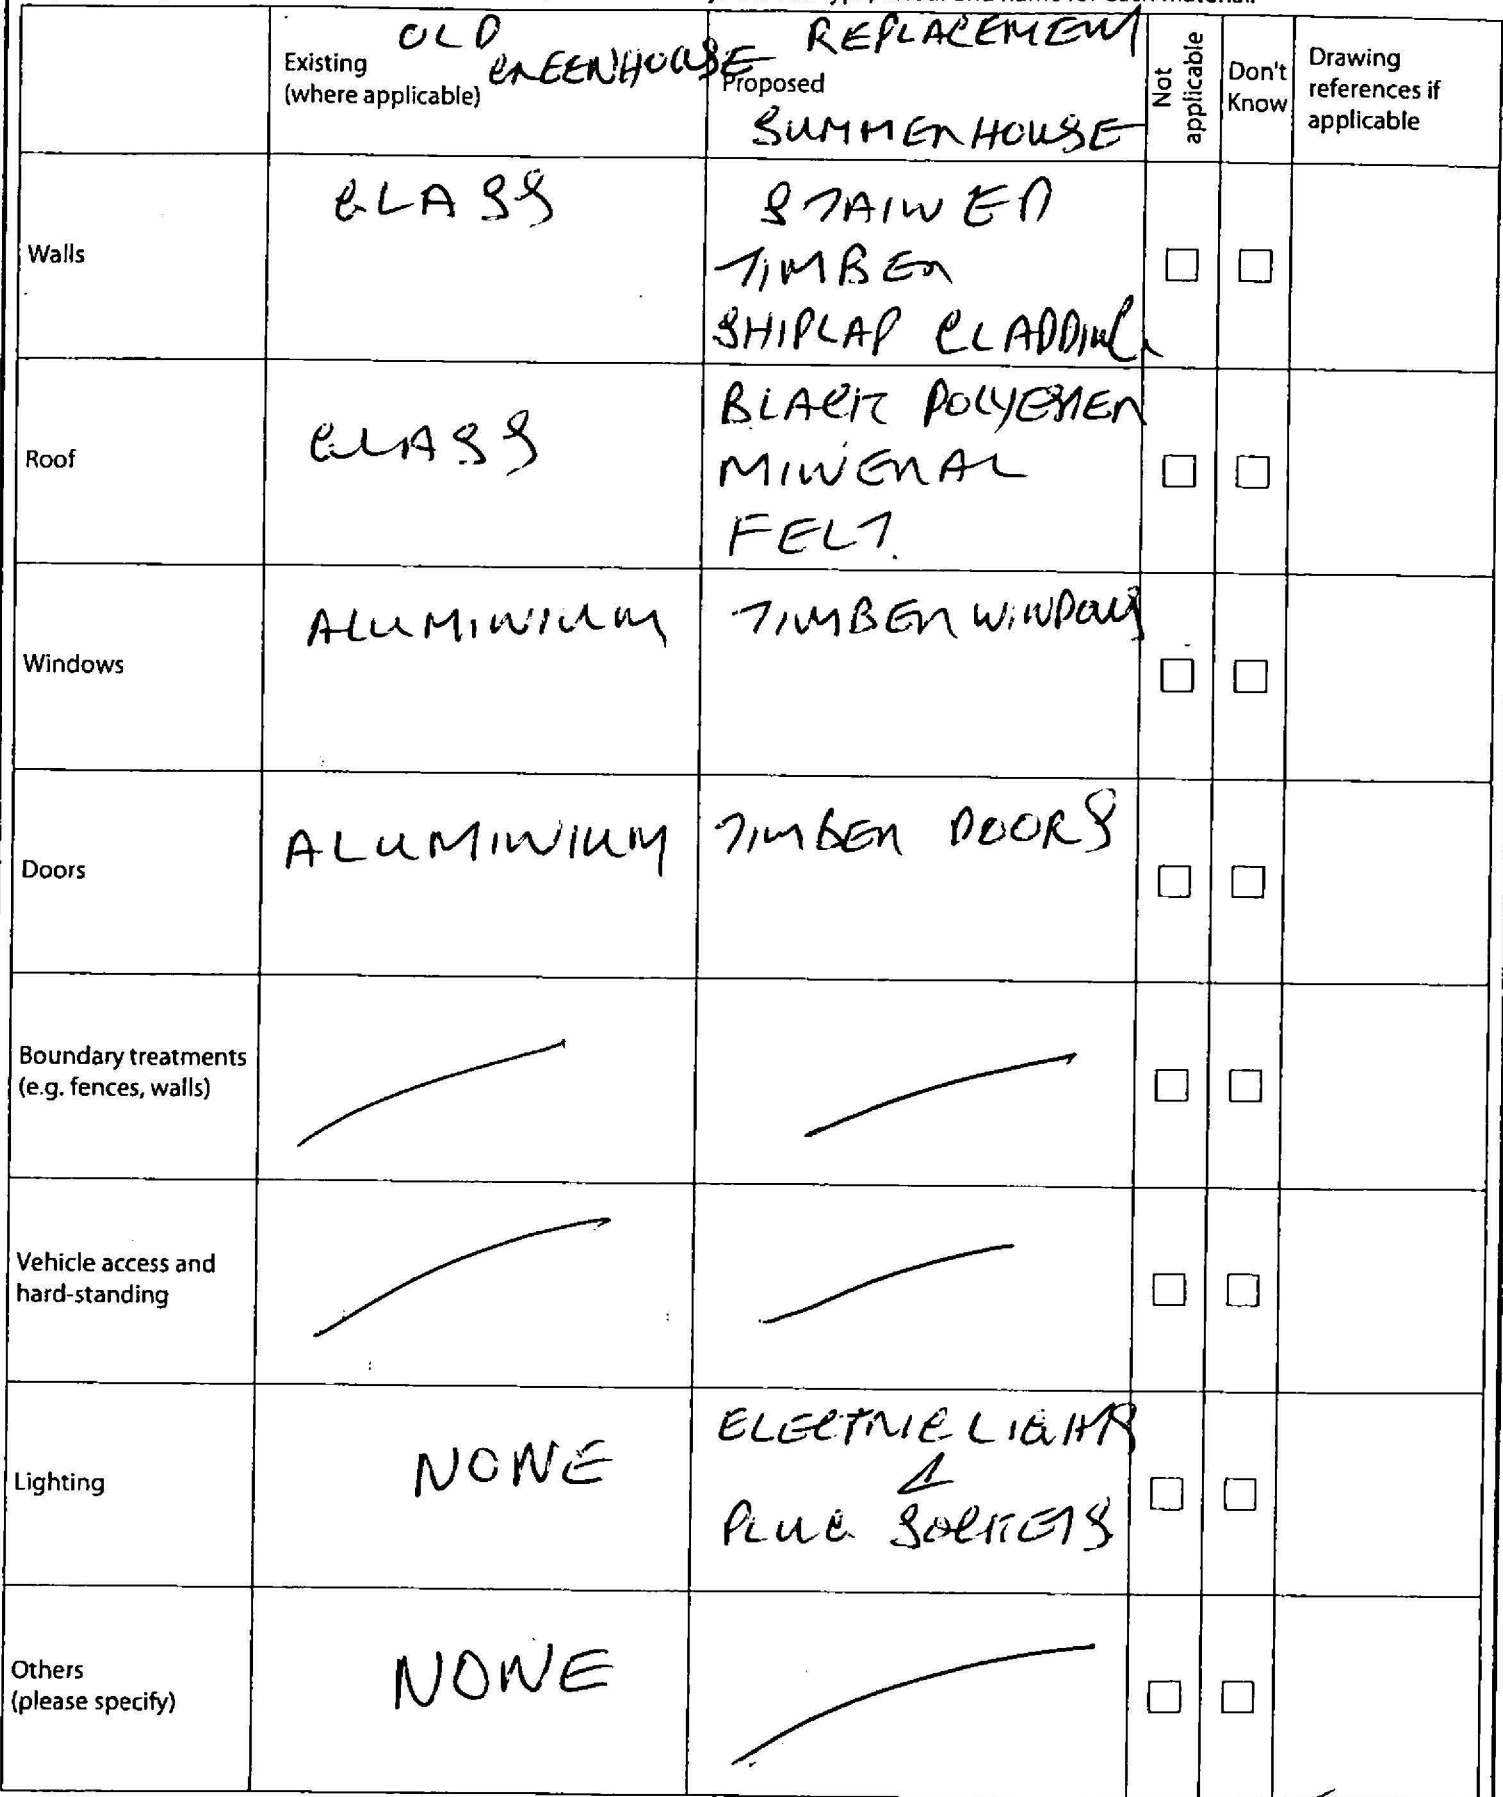 OLD
GREENHOUSE
REPLACEMENT
Existing
(where applicable)
Proposed
SUMMERHOUSE
Not
applicable
Don't
Know
Drawing
references if
applicable
Walls
GLASS
STAINED
TIMBER
SHIPLAP CLADDING
Roof
GLASS
BLACK POLYESTER
MINERAL
FELT.
Windows
ALUMINIUM
TIMBER WINDOWS
Doors
ALUMINIUM
TIMBER DOORS
Boundary treatments
(e.g. fences, walls)
Vehicle access and
hard-standing
Lighting
NONE
ELECTRIC LIGHTS
&
PLUG SOCKETS
Others
(please specify)
NONE